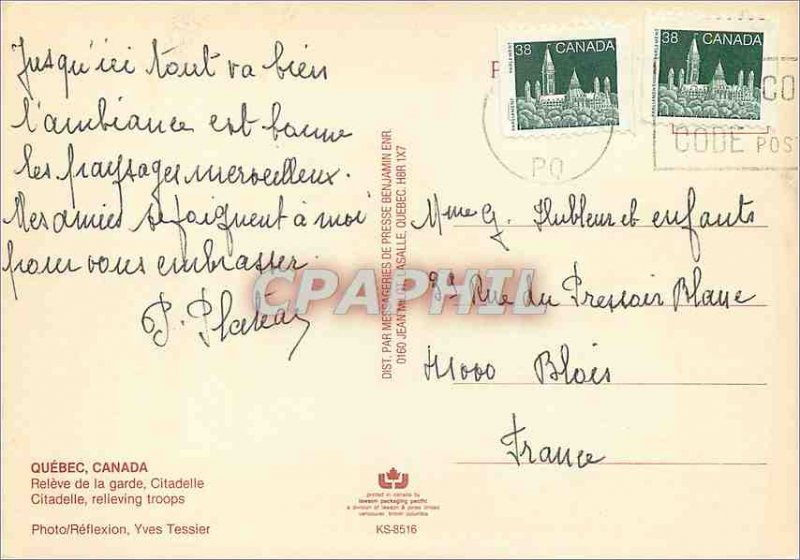 Jusqu'ici tout va bien
l'ambiance est bonne
les paysages merveilleux.
Mes amies se joignent à moi
pour vous embrasser.
P.
38 CANADA
PARLEMENT
PARLIAMENT
38 CANADA
PARLEMENT
PARLIAMENT
PO
CO
CODE POST
Mme G. et enfants
Rue du Pressoir Blanc
41000 Blois
France
CPAPHIL
DIST. PAR MESSAGERIES DE PRESSE BENJAMIN ENR.
0160 JEAN LASALLE, QUEBEC. H8R 1X7
QUÉBEC, CANADA
Relève de la garde, Citadelle
Citadelle, relieving troops
Photo/Réflexion, Yves Tessier
printed in canada by
lawson packaging pacific
a division of lawson & jones limited
vancouver, british columbia
KS-8516